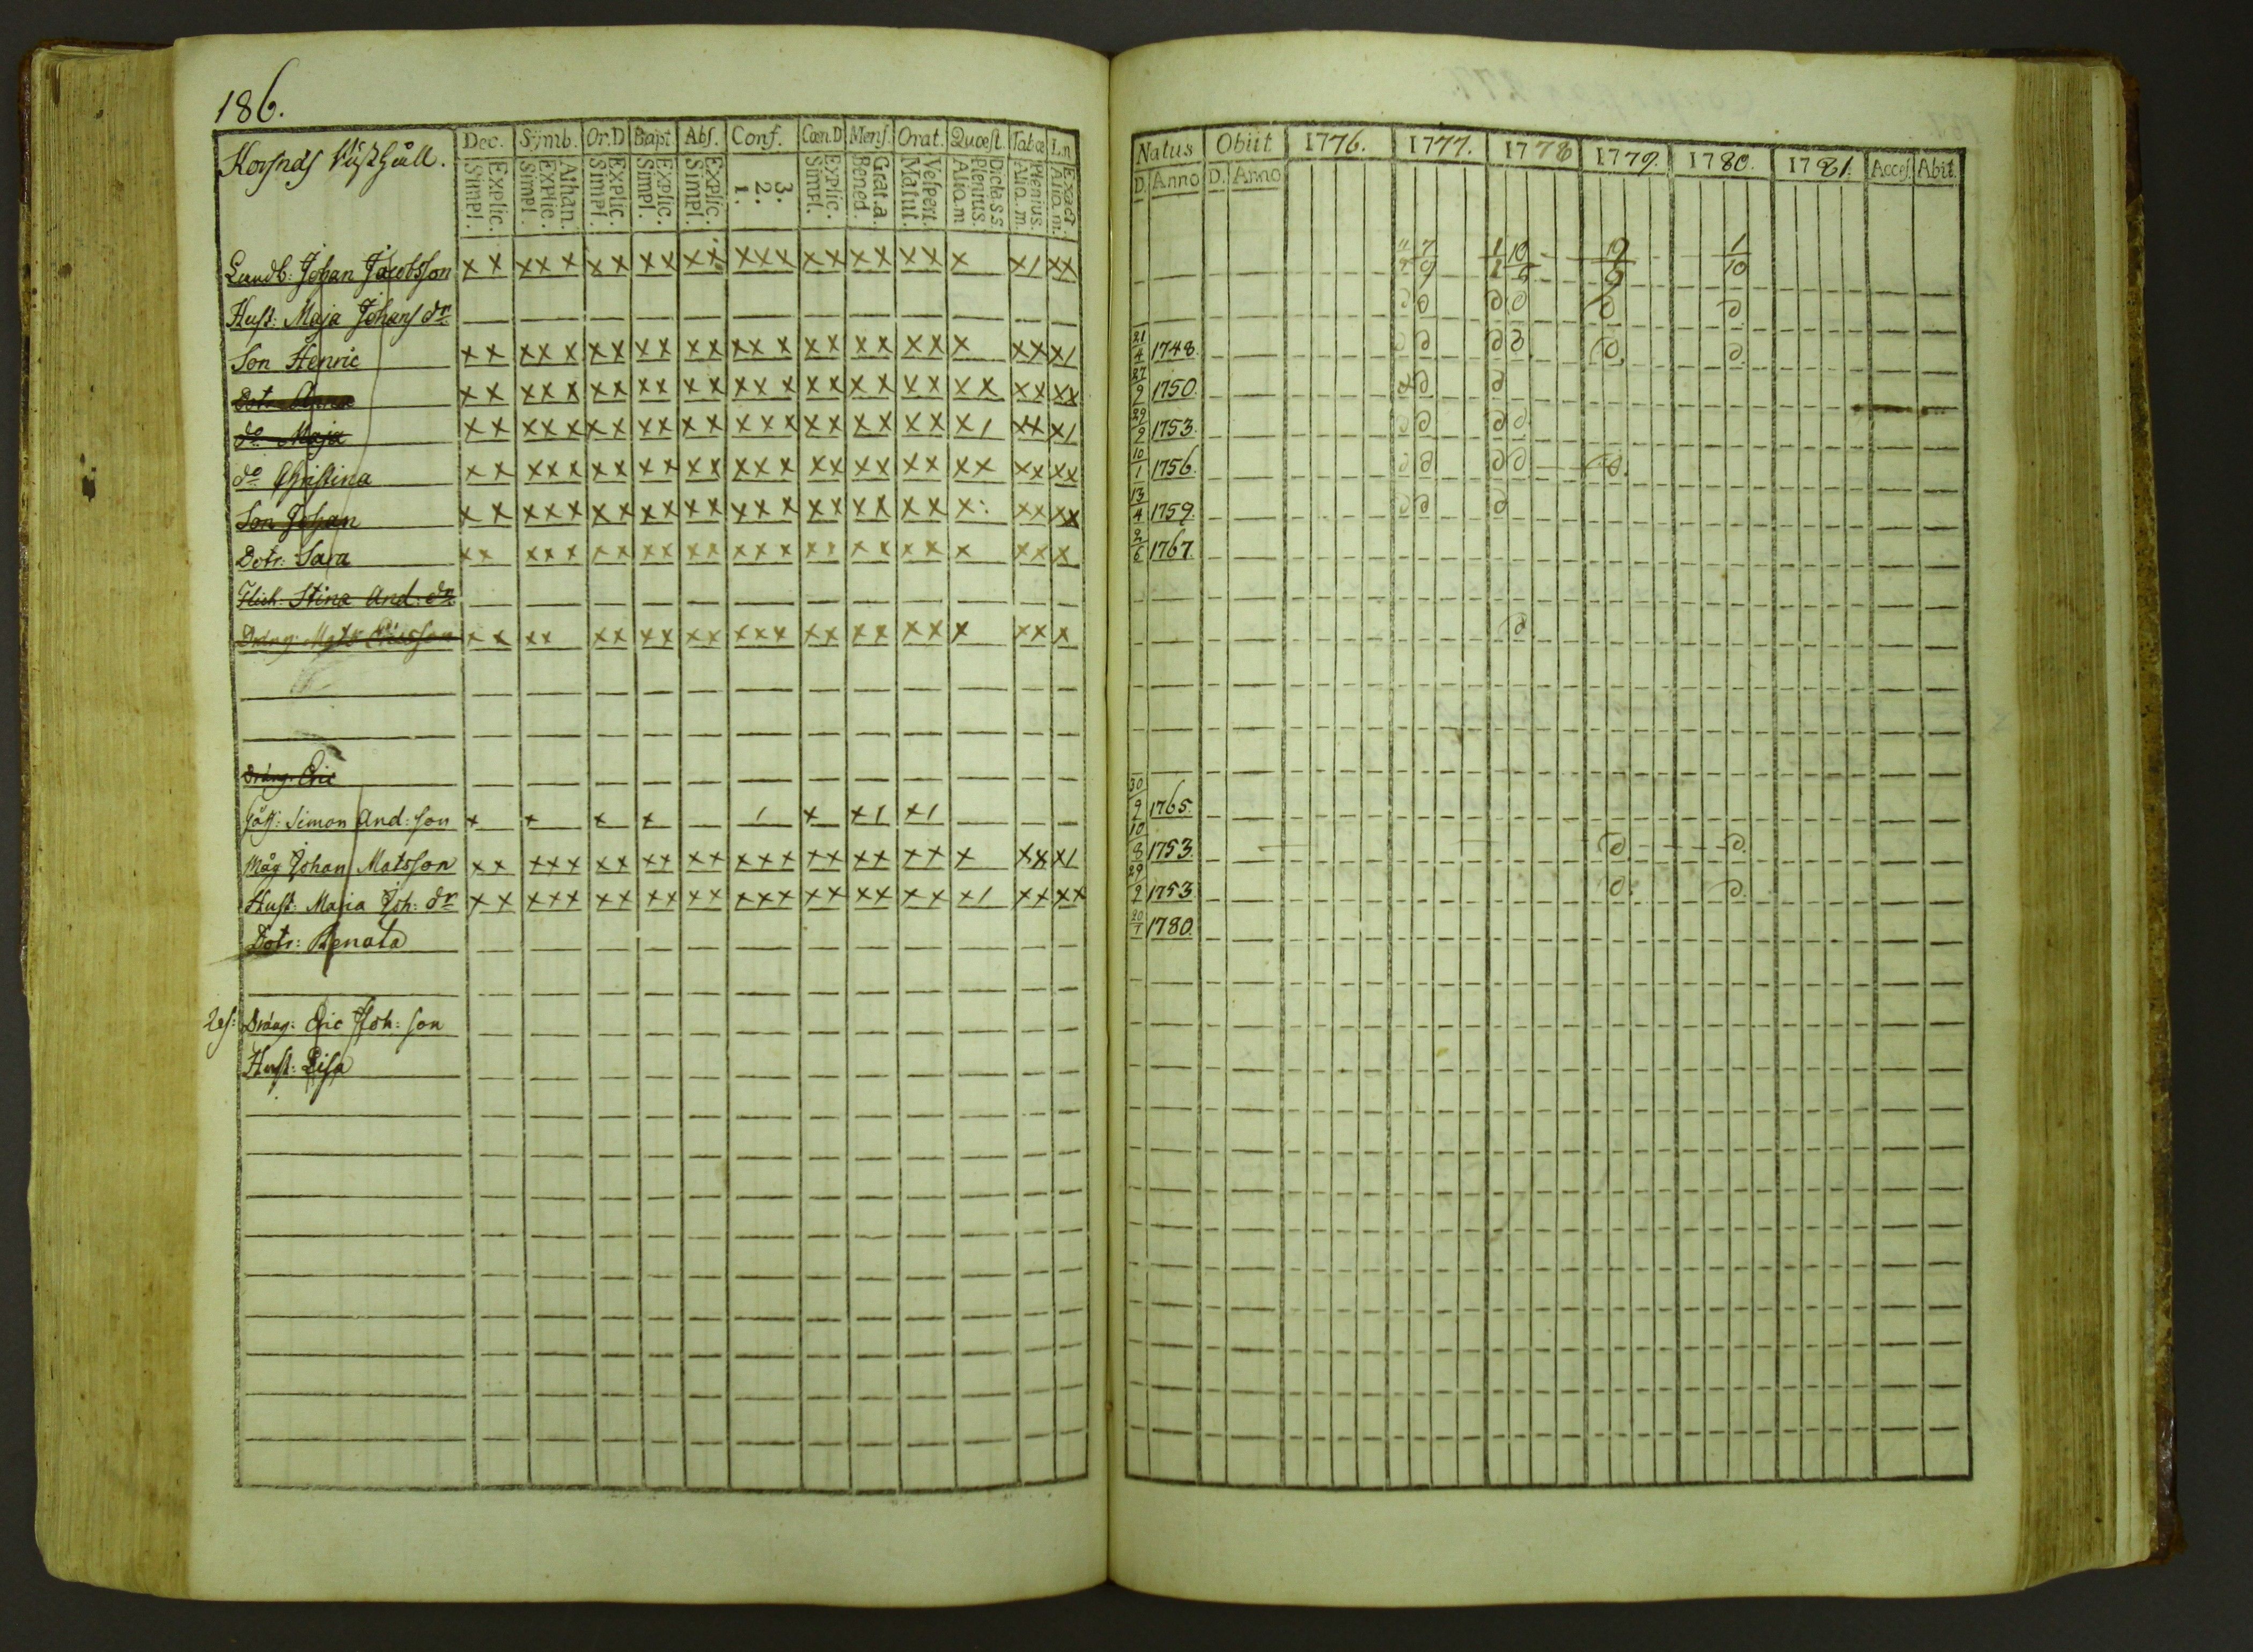 186.
Dec. Symb. Or.D Bapt Abs. Conf. Cœn.D Mens. Orat. Quæst. Tabæ L.n
Simpl. Explic. Simpl. Explic. Athan. Simpl. Explic. Simpl. Explic. Simpl. Explic. 1. 2. 3. Simpl. Explic. Bened. Grat.a. Matut. Vespert. Aliq.m Plenius. Dicta.S.S Aliq.m. Plenius. Aliq.m. Exact
Natus Obiit 1776. 1777. 1778 1779. 1780. 1781. Acces. Abit.
D. Anno D. Anno
Landb: Johan Jacobsson x x x x x x x x x x x x x x x x x x x x x 1 x x 1 10 9 1 10
Hust: Maja Johans dr
Son Henric x x x x x x x x x x x x x x x x x x x x x x x 1 21/4 1748.
Dotr x x x x x x x x x x x x x x x x x x x x x x x x x 27/9 1750.
do Maja x x x x x x x x x x x x x x x x x x x x x 1 x x x 1 29/9 1753.
do Christina x x x x x x x x x x x x x x x x x x x x x x x x x x 10/1 1756.
Son Johan x x x x x x x x x x x x x x x x x x x x x x x x x 13/4 1759.
Dotr: Sara x x x x x x x x x x x x x x x x x x x x x x x x 2/6 1767.
Stina And: dr
Dräng: Mats Ericsson x x x x x x x x x x x x x x x x x x x x x x x
Dräng: Eric
Simon And: son x x x x 1 x x 1 x 1 30/9 1765.
Måg Johan Matsson x x x x x x x x x x x x x x x x x x x x x x x x 1 10/8 1753.
Hust: Maria Joh: dr x x x x x x x x x x x x x x x x x x x x x 1 x x x x 29/9 1753.
Dotr: Renata 20/7 1780.
Dräng: Eric Joh: son
Hust: Lisa